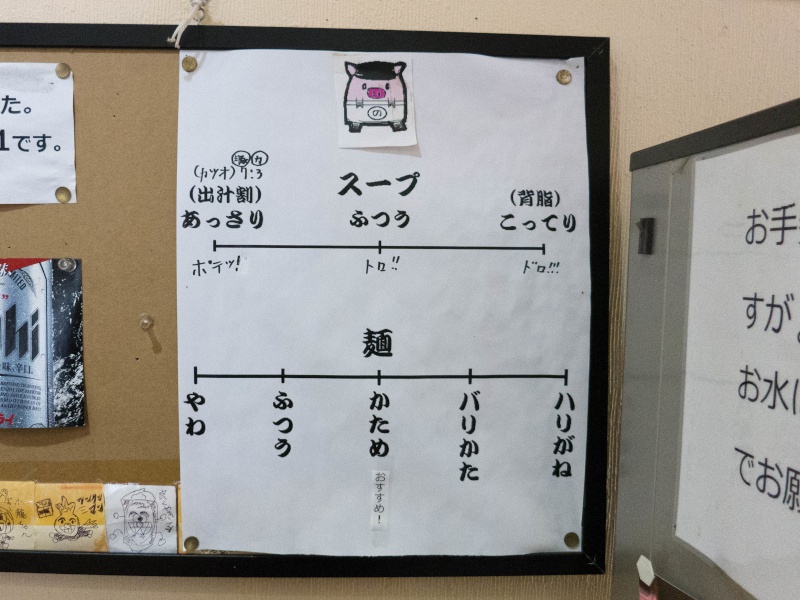 た。
1です。
の
(カツオ) 7:3
(出汁割)
あっさり
スープ
ふつう
(背脂)
こってり
ポテッ!
トロ!!
ドロ!!!
麺
やわ
ふつう
かため
バリかた
ハリがね
おすすめ!
hi
辛口
お手
すが
お水に
でお願